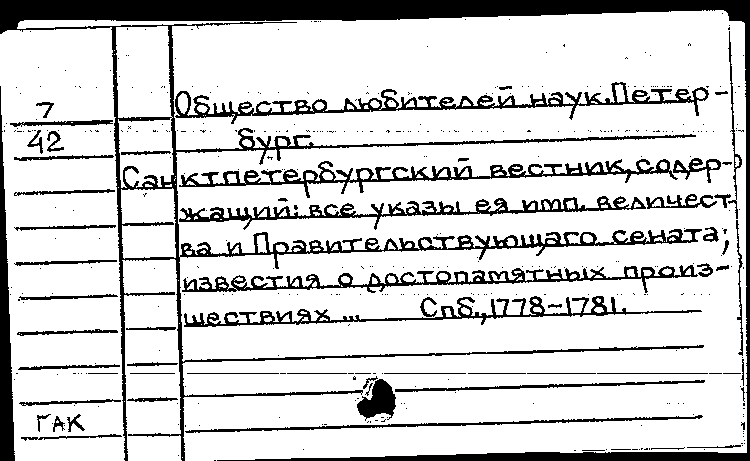 7 Общество любителей наук. Петер-
42 бург.
Санктпетербургский вестник, содер-
жащий: все указы ея имп. величест-
ва и Правительствующаго сената;
известия о достопамятных произ-
шествиях ... Спб., 1778-1781.
ГАК